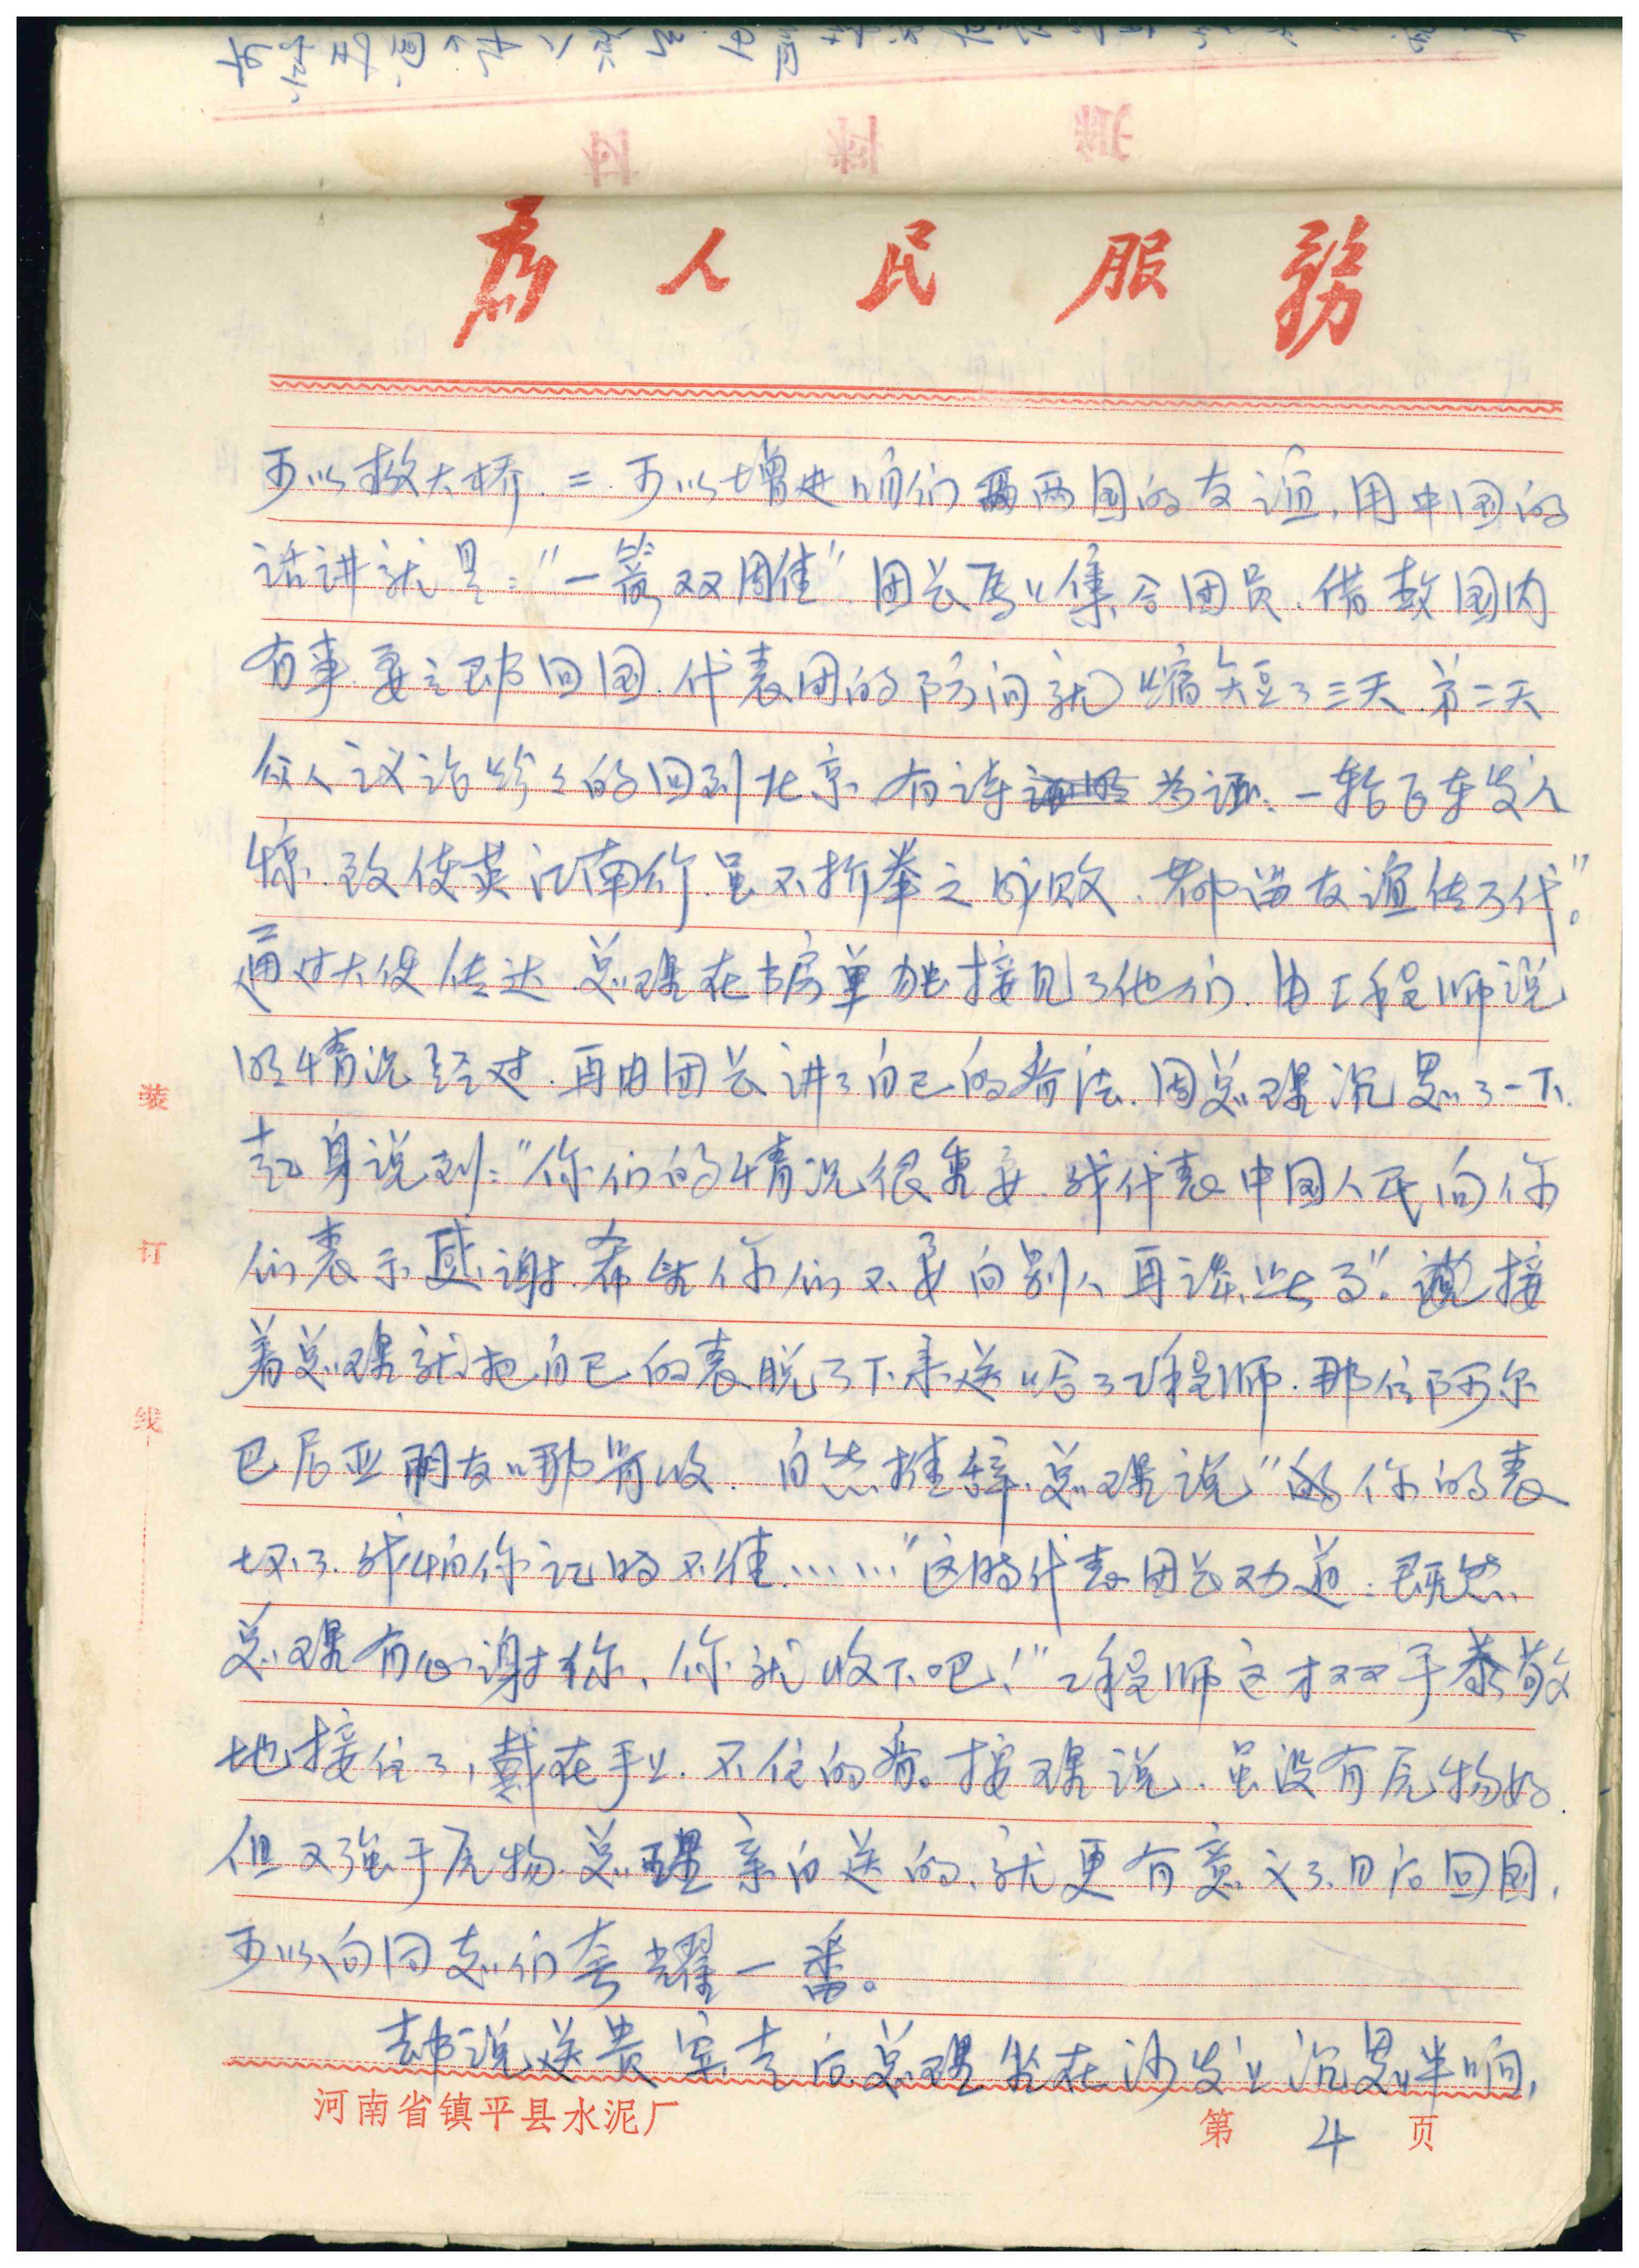 为人民服务
可以救大桥.二.可以增进咱们两国的友谊,用中国的
话讲就是:"一箭双雕"团长马上集合团员.借故国内
有事.要立即回国.代表团的访问就缩短了三天.第二天
众人议论纷纷的回到北京.有诗为证:一轮飞车发人
惊.致使英江南行.虽不折拳之成败.都留友谊传万代"。
通过大使传达.总理在书房单独接见了他们.由工程师说
明情况经过.再由团长讲了自己的看法.周总理沉思了一下.
起身说到:"你们的情况很重要.我代表中国人民向你
们表示感谢.希望你们不要向别人再谈此事"。接
着总理就把自己的表脱了下来送给了工程师.那位阿尔
巴尼亚朋友哪肯收.自然推辞.总理说"你的表
坏了.我怕你记时不准……"这时代表团长劝道:既然
总理有心谢你、你就收下吧!"工程师这才双手恭敬
地接住了,戴在手上.不住的看。按理说.虽没有原物好.
但又强于原物.总理亲自送的、就更有意义了.日后回国,
可以向同志们夸耀一番。
却说送贵宾走后.总理坐在沙发上沉思半响,
装
订
线
河南省镇平县水泥厂 第 4 页